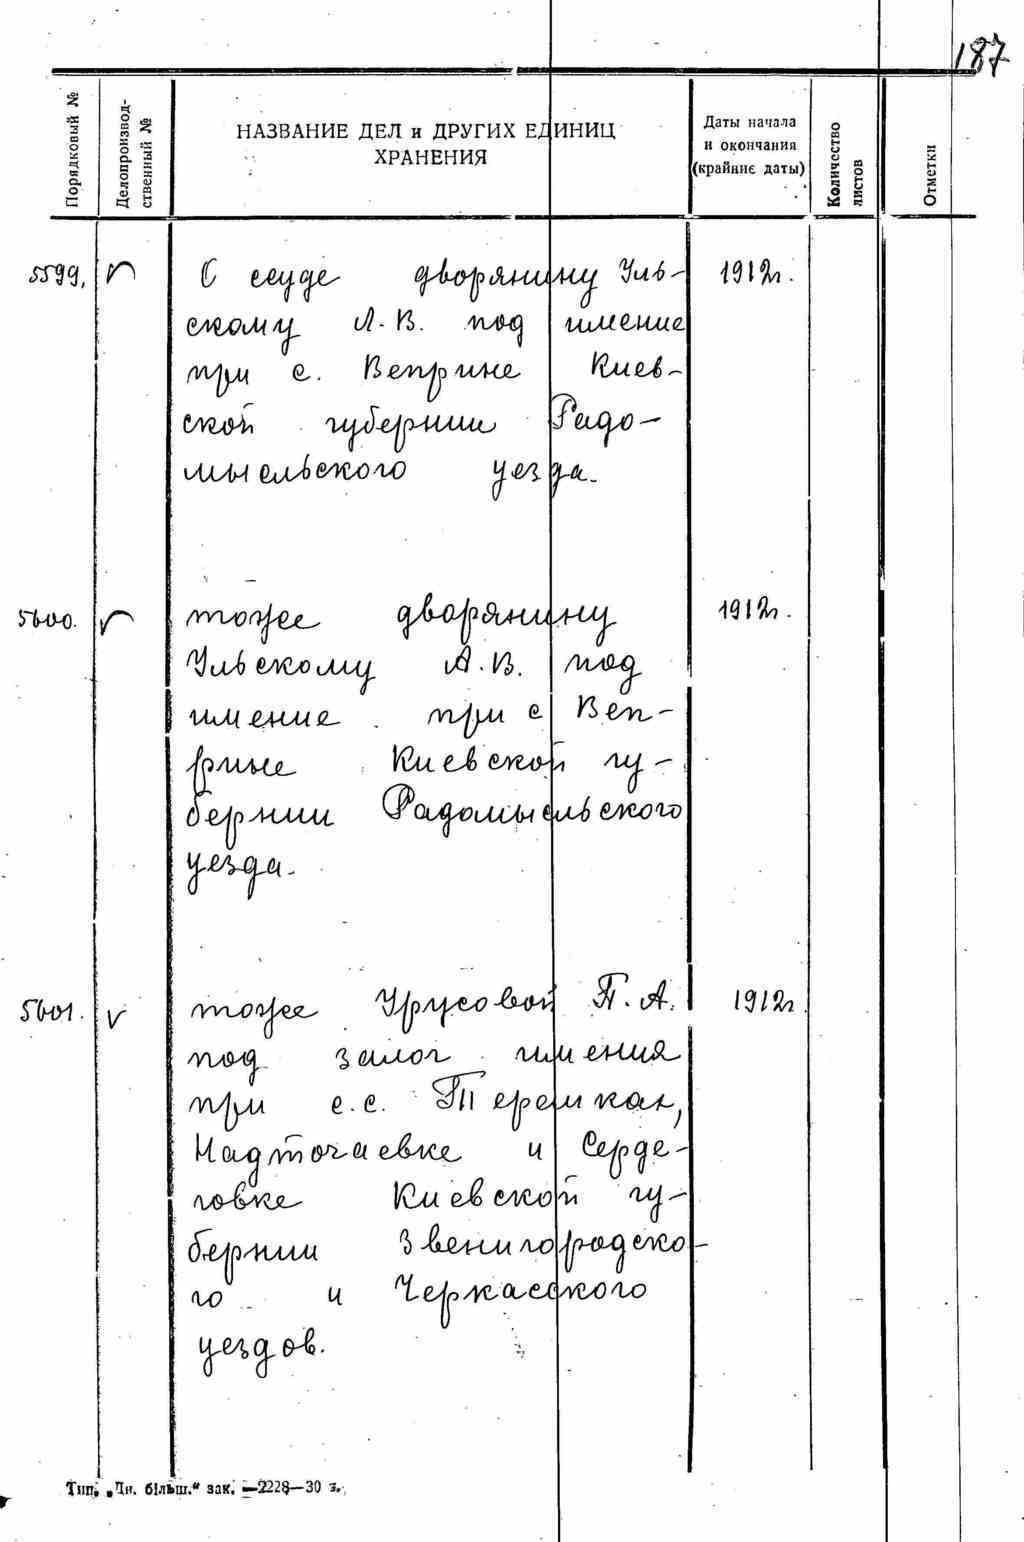 187
Порядковый №
Делопроизвод-
ственный №
НАЗВАНИЕ ДЕЛ и ДРУГИХ ЕДИНИЦ
ХРАНЕНИЯ
Даты начала
и окончания
(крайние даты)
Количество
листов
Отметки
5599. О ссуде дворянину Уль- 1912г.
скому А.В. под имение
при с. Веприне Киев-
ской губернии Радо-
мысльского уезда.
5600. тоже дворянину 1912г.
Ульскому А.В. под
имение при с Веп-
рине Киевской гу-
бернии Радомысльского
уезда.
5601. тоже Урусовой П.А. 1912г
под залог имения
при с.с. Терешках,
Надточаевке и Серде-
говке Киевской гу-
бернии Звенигородско-
го и Черкасского
уездов.
Тип. „Дн. більш." зак. —2228—30 т.